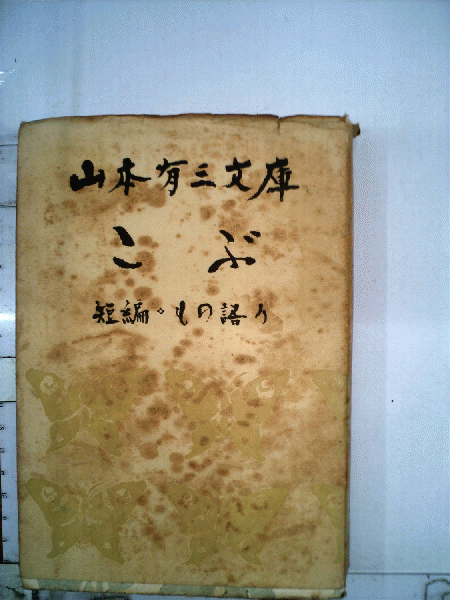 山本有三文庫
こぶ
短編。もの語り